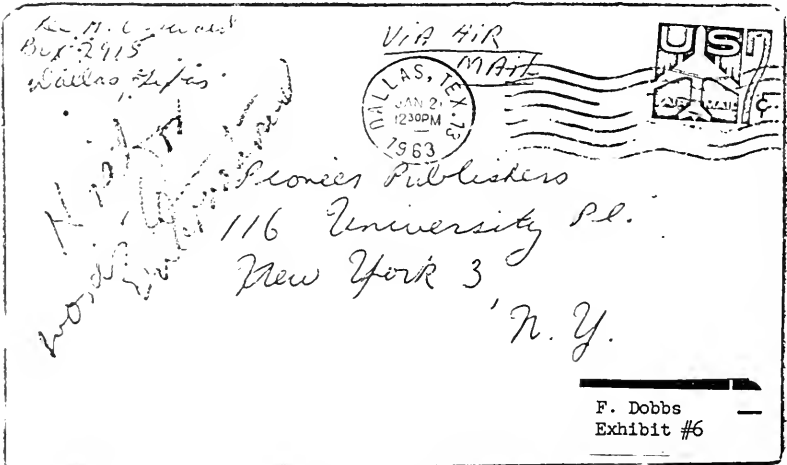 Box 2915
Dallas, Texas
VIA AIR
MAIL
DALLAS, TEX. 13
JAN 2
12 30 PM
1963
US
7
¢
AIR MAIL
Pioneer Publishers
116 University Pl.
New York 3
N. Y.
F. Dobbs
Exhibit #6